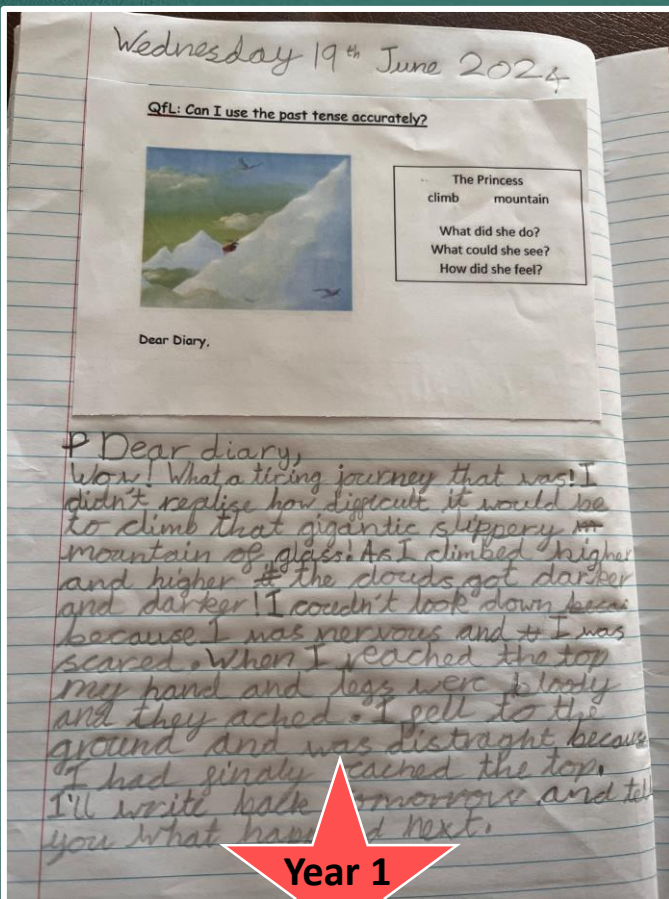 Wednesday 19th June 2024
QfL: Can I use the past tense accurately?
The Princess
climb mountain
What did she do?
What could she see?
How did she feel?
Dear Diary,
P Dear diary,
Wow! What a tiring journey that was! I
didn't realise how difficult it would be
to climb that gigantic slippery
mountain of glass! As I climbed higher
and higher the clouds got darker
and darker! I coudn't look down becau
because I was nervous and I was
scared. When I reached the top
my hand and legs were bloody
and they ached. I fell to the
ground and was distraght because
I had finaly reached the top.
I'll write back tomorrow and tell
you what happened next.
Year 1